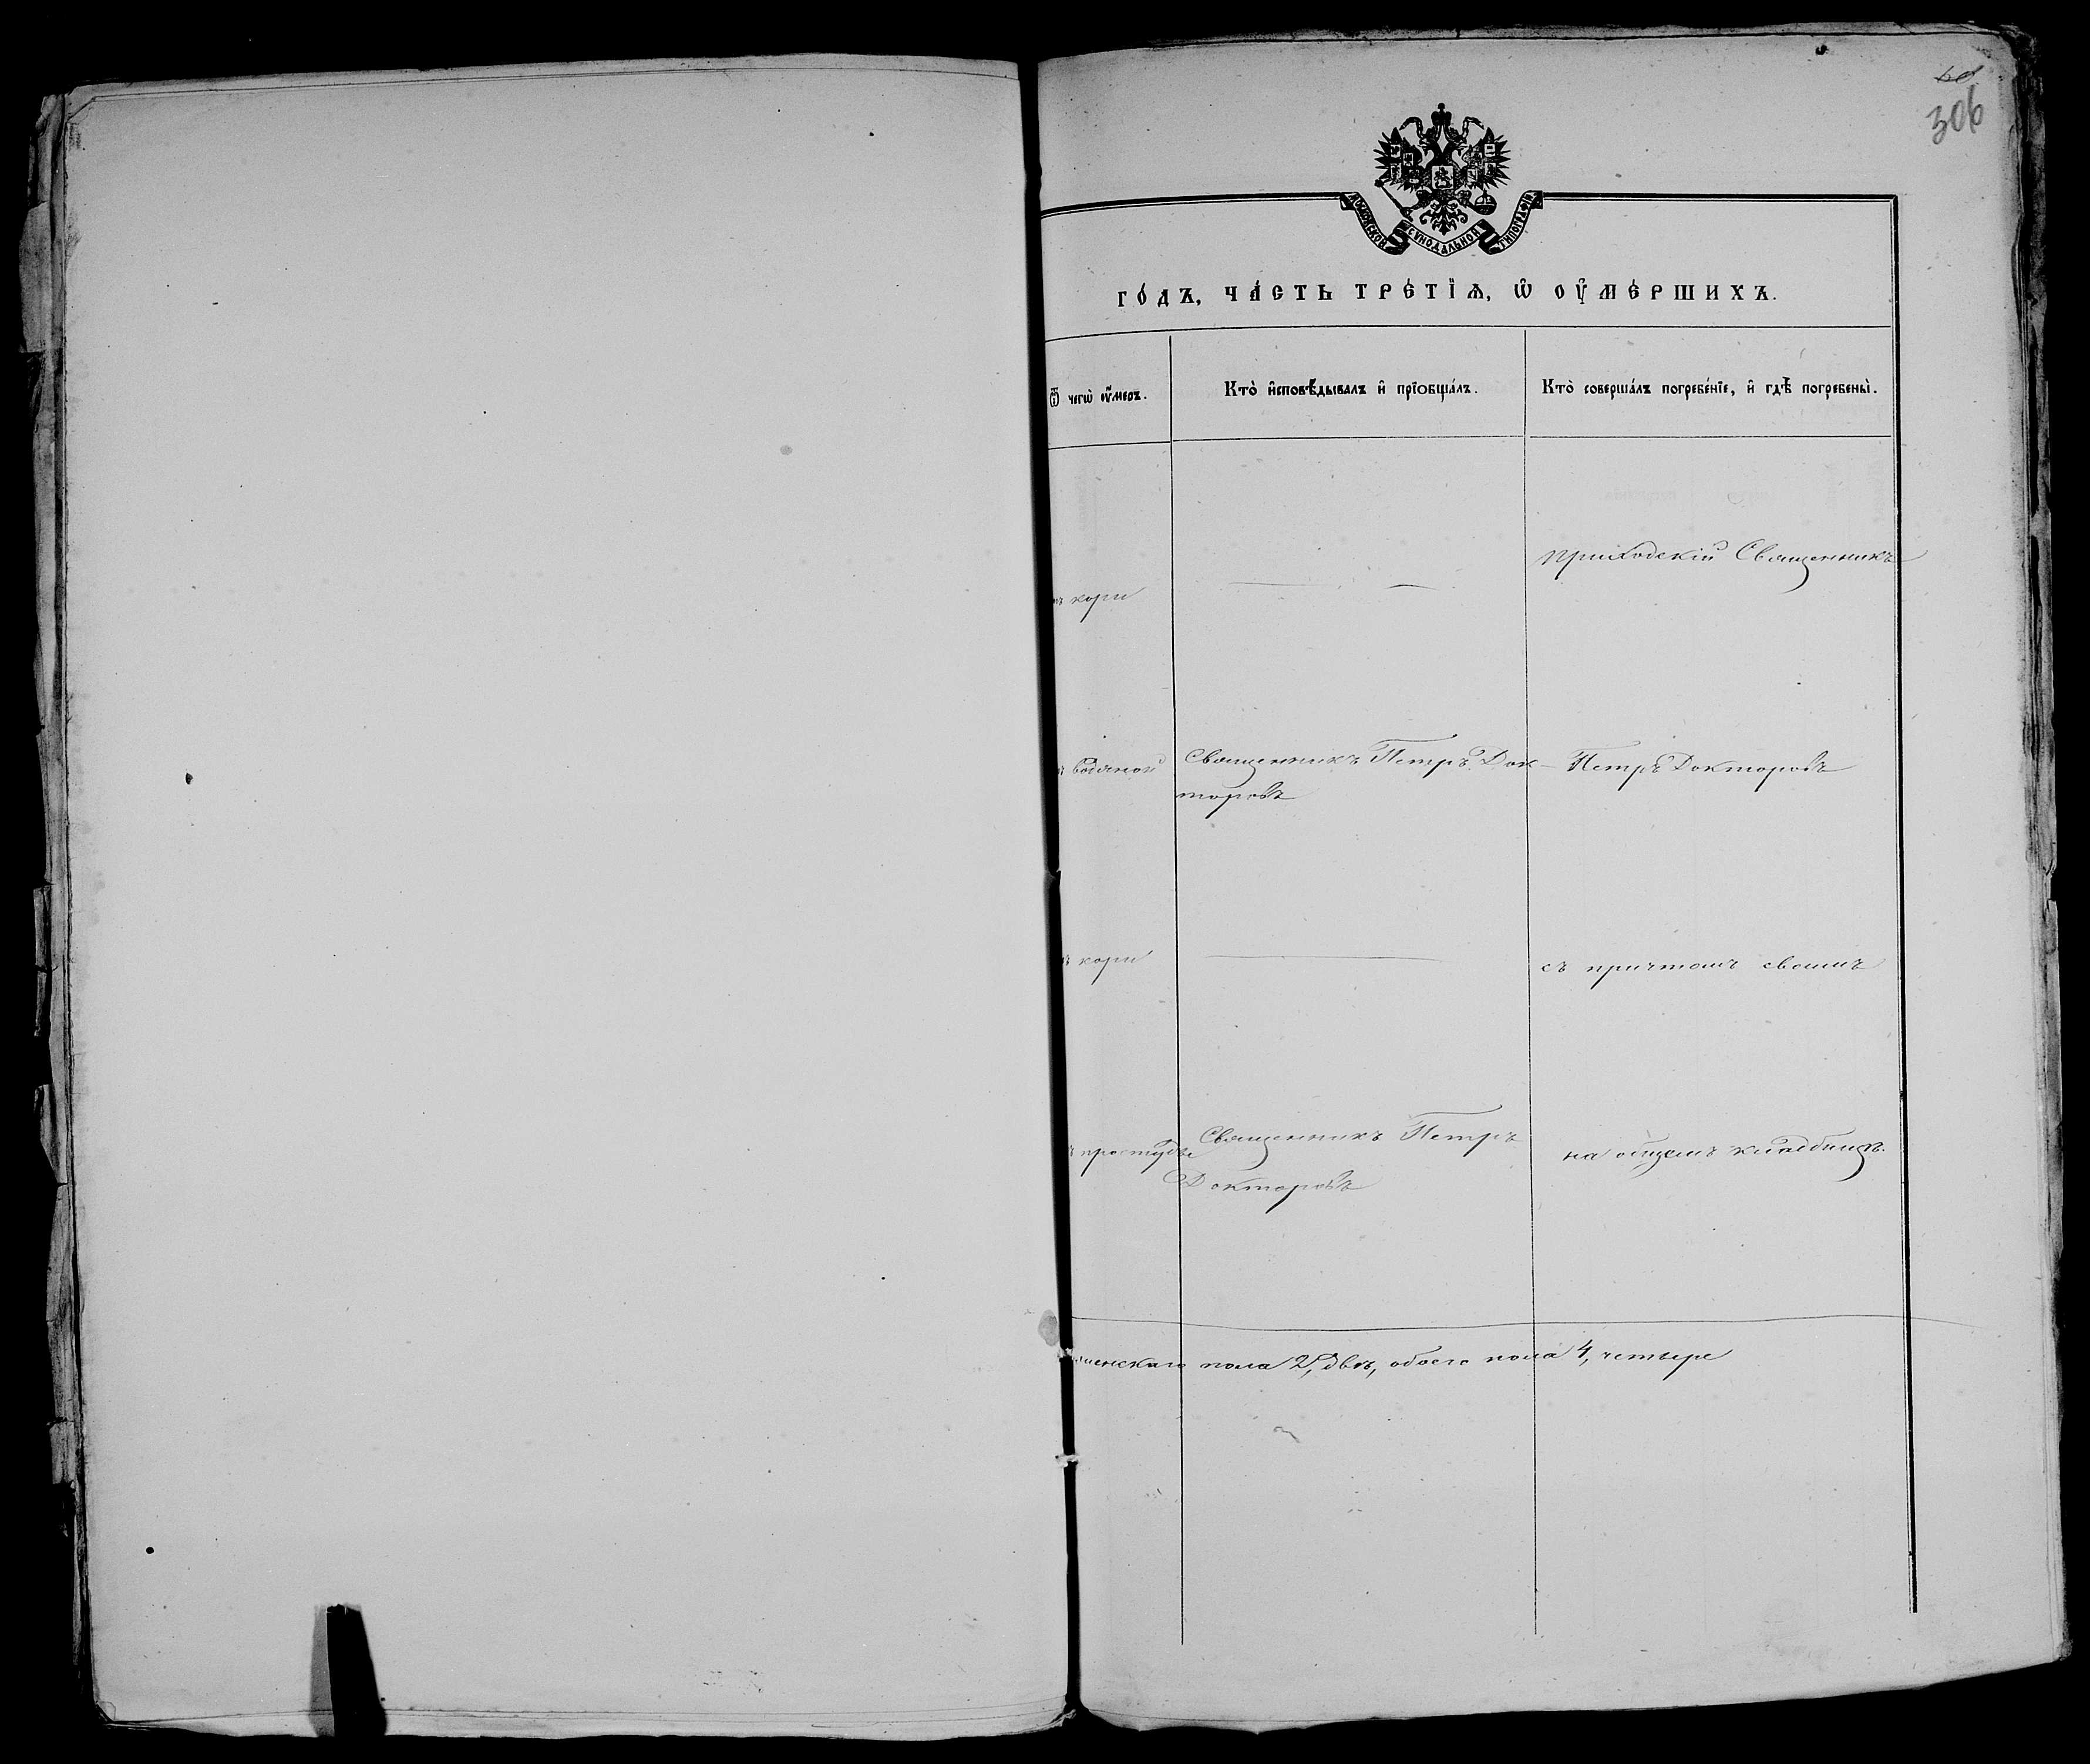 306
МОСКОВСКОЙ СѴНОДАЛЬНОЙ ТИПОГРАФІИ
го́дъ, ча́сть тре́тїѧ, ѡ҆ ᲂу҆ме́ршихъ.
Ѿ чегѡ̀ ᲂу҆́меръ.
Кто̀ и҆сповѣ́дывалъ и҆ прїѡбща́лъ.
Кто̀ соверша́лъ погребе́нїе, и҆ гдѣ̀ погребены̀.
Приходскій Священникъ
кори
водяной
Священникъ Петръ Док-
Петръ Докторовъ
торовъ
кори
съ причтомъ своимъ
простуды
Священникъ Петръ
на общемъ кладбищѣ.
Докторовъ
женскаго пола 2, двѣ, обоего пола 4, четыре